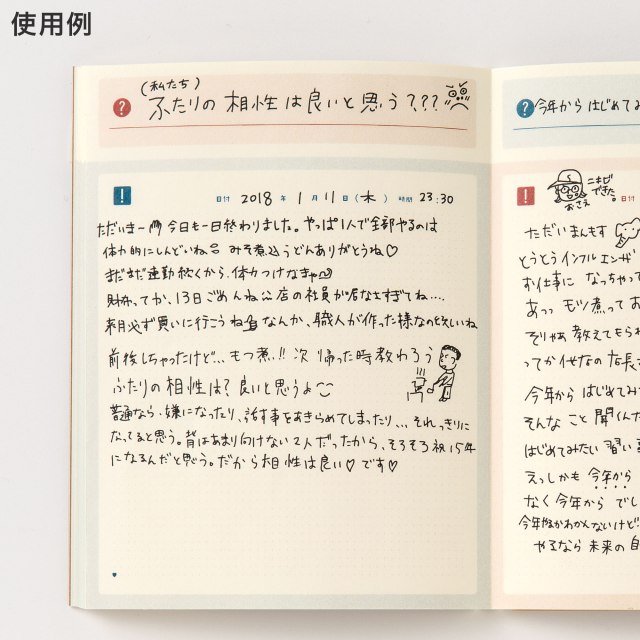 使用例
(私たち)
ふたりの相性は良いと思う???
日付 2018年 1月11日(木) 時間 23:30
ただいまー 今日も一日終わりました。やっぱ1人で全部やるのは
体力的にしんどいね みそ煮込うどんありがとうね♡
まだまだ連勤続くから、体力つけなきゃ
財布ってか、13日ごめんね 店の社員が居なさすぎてね....
来月必ず買いに行こうね なんか、職人が作った様なのといいね
前後しちゃったけど...もつ煮!!次 帰った時教わろう
ふたりの相性は?良いと思うよ
普通なら、嫌になったり、話す事をあきらめてしまったり...それっきりに
なってると思う。背はあまり向けない2人だったから、そろそろ祝15年
になるんだと思う。だから相性は良い♡です♡
今年からはじめてみ
ニキビできた。
おさえ
日付
ただいまんもす
とうとうインフルエンザ
お仕事に なっちゃって
あっっ モツ煮ってお
そりゃあ教えてもら
ってか
今年から はじめてみ
そんなこと 聞くん
はじめてみたい 習い
えっしかも 今年から
なく今年から でし
今年やるかわかんないけど
やるなら 未来の自